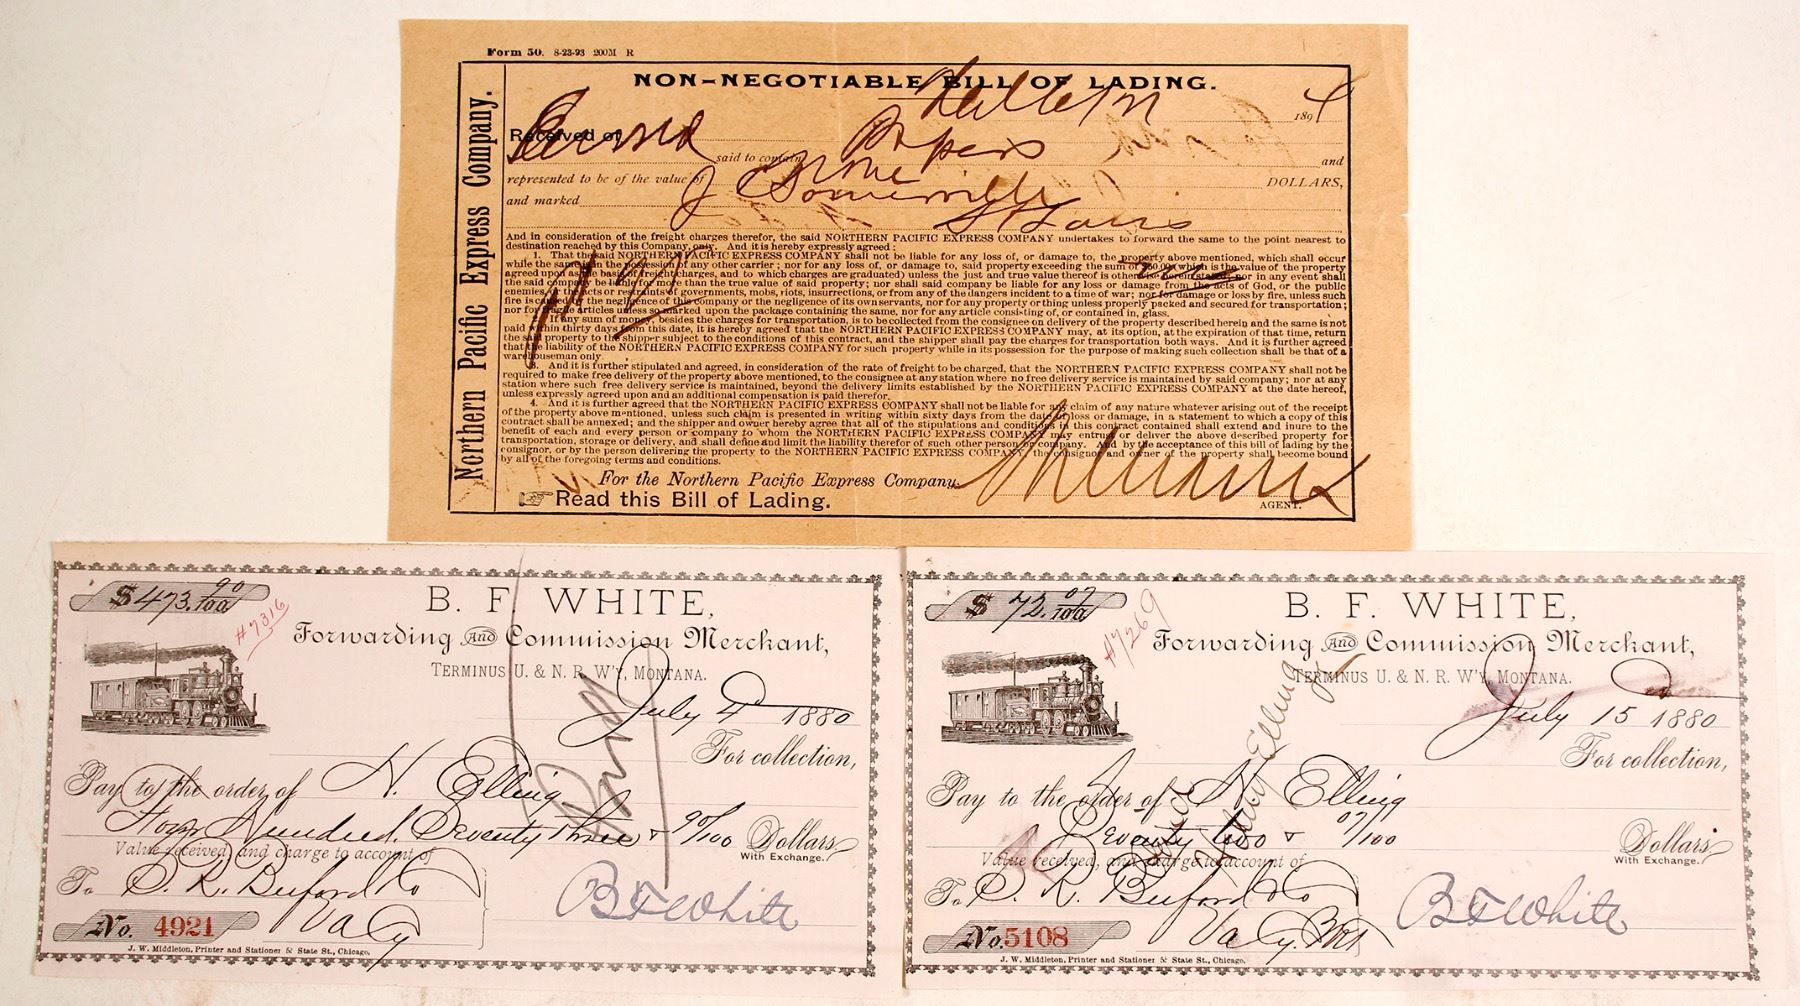 Form 50. 8-23-93 200M R
NON-NEGOTIABLE BILL OF LADING.
Northern Pacific Express Company.
189 4
Received of
said to contain Papers and
represented to be of the value of None DOLLARS,
and marked J C Somerville
St Louis
And in consideration of the freight charges therefor, the said NORTHERN PACIFIC EXPRESS COMPANY undertakes to forward the same to the point nearest to
destination reached by this Company, only. And it is hereby expressly agreed:
1. That the said NORTHERN PACIFIC EXPRESS COMPANY shall not be liable for any loss of, or damage to, the property above mentioned, which shall occur
while the same is in the possession of any other carrier; nor for any loss of, or damage to, said property exceeding the sum of $50.00 (which is the value of the property
agreed upon as the basis of freight charges, and to which charges are graduated) unless the just and true value thereof is otherwise herein stated; nor in any event shall
the said company be liable for more than the true value of said property; nor shall said company be liable for any loss or damage from the acts of God, or the public
enemies, or the acts or restraints of governments, mobs, riots, insurrections, or from any of the dangers incident to a time of war; nor for damage or loss by fire, unless such
fire is caused by the negligence of this company or the negligence of its own servants, nor for any property or thing unless properly packed and secured for transportation;
nor for fragile articles unless so marked upon the package containing the same, nor for any article consisting of, or contained in, glass.
2. If any sum of money, besides the charges for transportation, is to be collected from the consignee on delivery of the property described herein and the same is not
paid within thirty days from this date, it is hereby agreed that the NORTHERN PACIFIC EXPRESS COMPANY may, at its option, at the expiration of that time, return
the said property to the shipper subject to the conditions of this contract, and the shipper shall pay the charges for transportation both ways. And it is further agreed
that the liability of the NORTHERN PACIFIC EXPRESS COMPANY for such property while in its possession for the purpose of making such collection shall be that of a
warehouseman only.
3. And it is further stipulated and agreed, in consideration of the rate of freight to be charged, that the NORTHERN PACIFIC EXPRESS COMPANY shall not be
required to make free delivery of the property above mentioned, to the consignee at any station where no free delivery service is maintained by said company; nor at any
station where such free delivery service is maintained, beyond the delivery limits established by the NORTHERN PACIFIC EXPRESS COMPANY at the date hereof,
unless expressly agreed upon and an additional compensation is paid therefor.
4. And it is further agreed that the NORTHERN PACIFIC EXPRESS COMPANY shall not be liable for any claim of any nature whatever arising out of the receipt
of the property above mentioned, unless such claim is presented in writing within sixty days from the date of loss or damage, in a statement to which a copy of this
contract shall be annexed; and the shipper and owner hereby agree that all of the stipulations and conditions in this contract contained shall extend and inure to the
benefit of each and every person or company to whom the NORTHERN PACIFIC EXPRESS COMPANY may entrust or deliver the above described property for
transportation, storage or delivery, and shall define and limit the liability therefor of such other person or company. And by the acceptance of this bill of lading by the
consignor, or by the person delivering the property to the NORTHERN PACIFIC EXPRESS COMPANY, the consignor and owner of the property shall become bound
by all of the foregoing terms and conditions.
For the Northern Pacific Express Company,
Read this Bill of Lading.
AGENT.
$473.90/100
#7316
B. F. WHITE,
Forwarding And Commission Merchant,
TERMINUS U. & N. R. W'Y, MONTANA.
July 4th 1880
For collection,
Pay to the order of H. Elling
Four Hundred Seventy three & 90/100 Dollars
With Exchange.
Value received, and charge to account of
To S. R. Buford & Co
Va Cy
B F White
No. 4921
J. W. Middleton, Printer and Stationer 55 State St., Chicago.
$72.07/100
#7269
B. F. WHITE,
Forwarding And Commission Merchant,
TERMINUS U. & N. R. W'Y, MONTANA.
July 15 1880
For collection,
Pay to the order of H Elling
Seventy two & 07/100 Dollars
With Exchange.
Value received, and charge to account of
To S. R. Buford & Co
Va Cy. Mt
B F White
No. 5108
J. W. Middleton, Printer and Stationer 55 State St., Chicago.